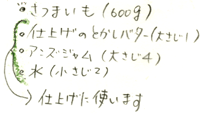 ・さつまいも(600g)
・仕上げのとかしバター(大さじ1)
・アンズジャム(大さじ4)
・水(小さじ2)
→仕上げに使います